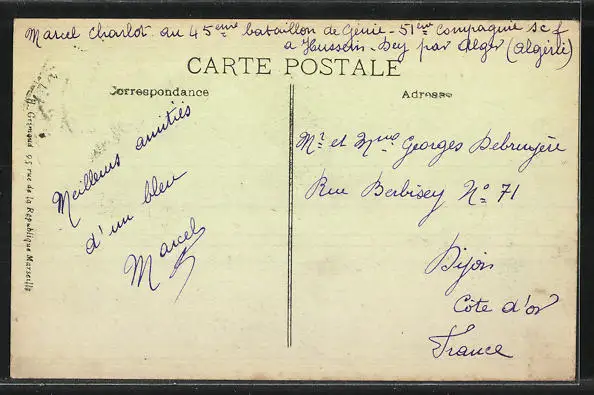 Marcel Charlot au 45ème bataillon de Génie - 51ème Compagnie S c f
a Hussein-Dey par Alger (Algérie)
CARTE POSTALE
Correspondance
Adresse
Meilleurs amitiés
d'un bleu
Marcel
Mr et Mme Georges Debruyère
Rue Berbisey N° 71
Dijon
Côte d'or
France
Grimaud 95 rue de la République Marseille